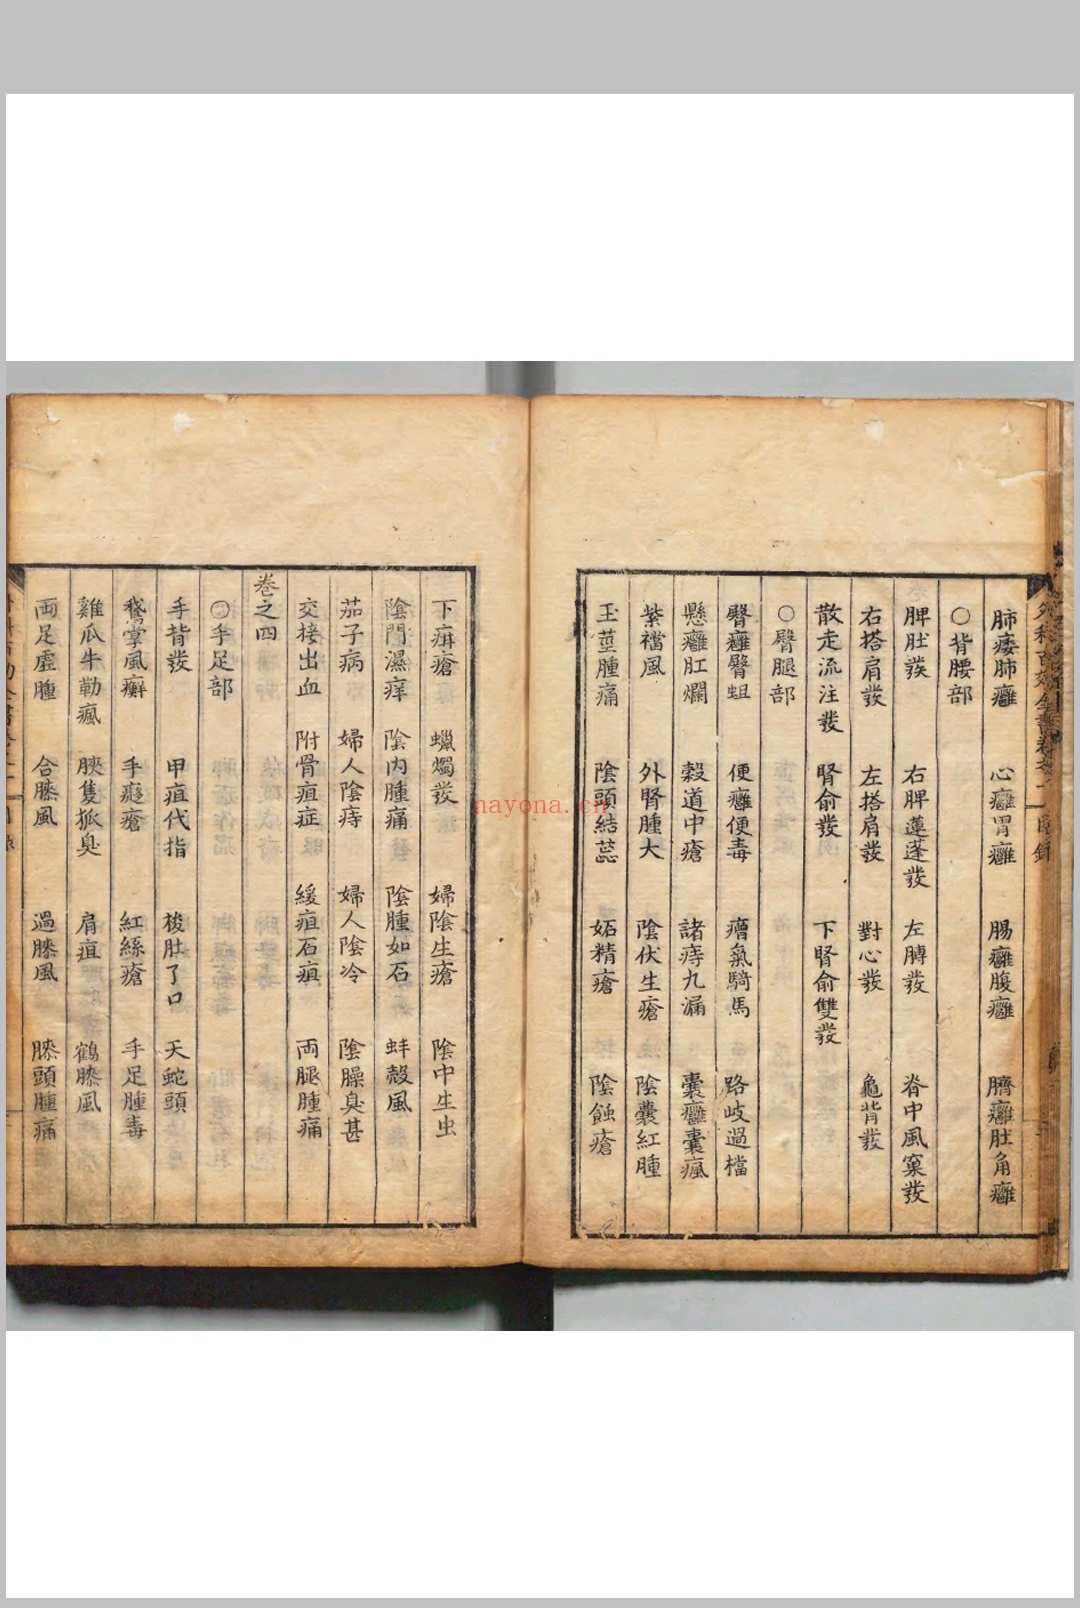 肺痿肺癰 心癰胃癰 腸癰腹癰 臍癰肚角癰
○背腰部
脾肚發 右脾蓮蓬發 左膊發 脊中風窠發
右搭肩發 左搭肩發 對心發 龜背發
散走流注發 腎俞發 下腎俞雙發
○臀腿部
臀癰臀蛆 便癰便毒 癗氣騎馬 路岐過檔
懸癰肛爛 穀道中瘡 諸痔九漏 囊癰囊瘋
紫襠風 外腎腫大 陰伏生瘡 陰囊紅腫
玉莖腫痛 陰頭結蕋 妬精瘡 陰蝕瘡
下疳瘡 蠟燭發 婦陰生瘡 陰中生虫
陰門濕痒 陰內腫痛 陰腫如石 蚌殼風
茄子病 婦人陰痔 婦人陰冷 陰臊臭甚
交接出血 附骨疽症 緩疽石疽 両腿腫痛
卷之四
○手足部
手背發 甲疽代指 梭肚了口 天蛇頭
鵞掌風癬 手癡瘡 紅絲瘡 手足腫毒
雞瓜牛勒瘋 腋隻狐臭 肩疽 鶴膝風
両足虛腫 合膝風 過膝風 膝頭腫痛
nayona.cn